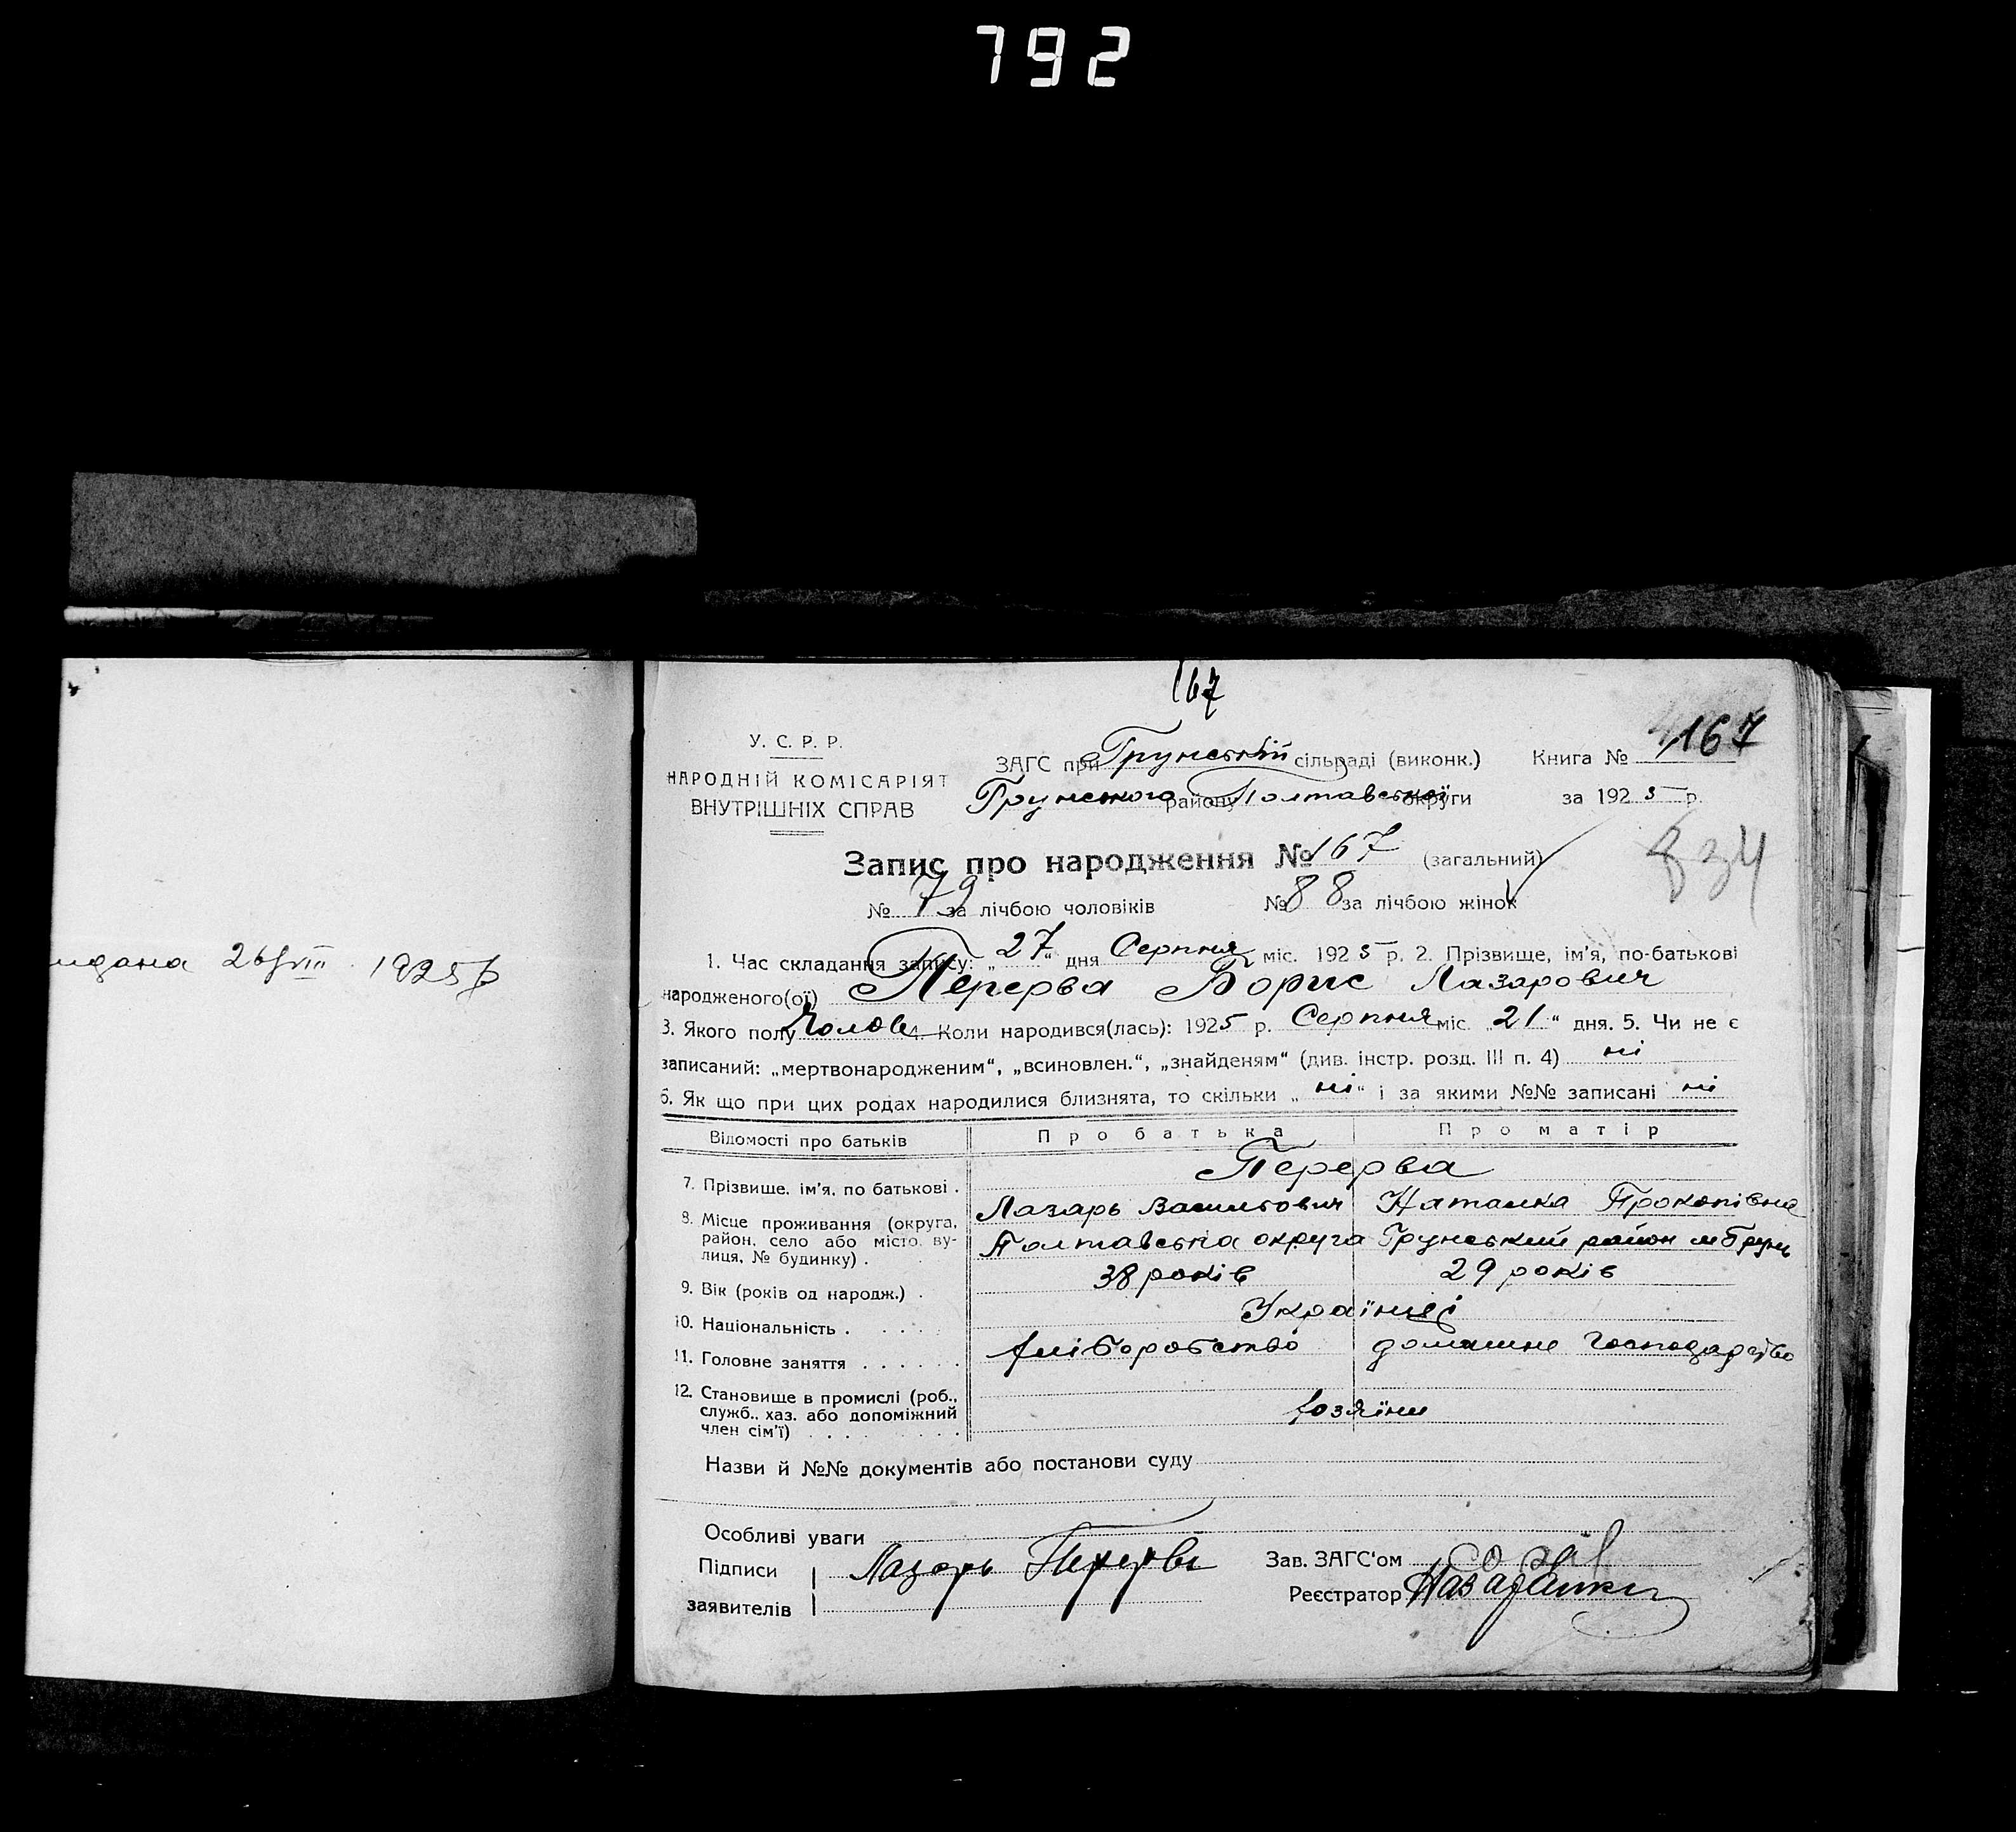 792
167
167
У. С. Р. Р.
НАРОДНІЙ КОМІСАРІЯТ
ВНУТРІШНІХ СПРАВ
ЗАГС при Грунській сільраді (виконк.) Книга №
Грунського району Полтавської округи за 1925 р.
Запис про народження № 167 (загальний)
834
№ 79 за лічбою чоловіків № 88 за лічбою жінок
1. Час складання запису: „27“ дня Серпня міс. 1925 р. 2. Прізвище, ім'я, по-батькові
народженого(ої) Перерва Борис Лазарович
3. Якого полу Чолов 4. Коли народився(лась): 1925 р. Серпня міс. „21“ дня. 5. Чи не є
записаний: „мертвонародженим“, „всиновлен.“, „знайденям“ (див. інстр. розд. III п. 4) ні
6. Як що при цих родах народилися близнята, то скільки „ні“ і за якими №№ записані ні
Відомості про батьків Про батька Про матір
Перерва
7. Прізвище, ім'я, по батькові . Лазарь Васильович Наталка Прокопівна
8. Місце проживання (округа, район, село або місто, вулиця, № будинку) . Полтавська округа Грунський район м Грунь
9. Вік (років од народж.) . 38 років 29 років
10. Національність . . . . . Українці
11. Головне заняття . . . . . . хліборобство домашне господарство
12. Становище в промислі (роб., служб., хаз. або допоміжний член сім'ї) . . . . . . . . . хозяїни
Назви й №№ документів або постанови суду
Особливі уваги
Підписи заявителів Лазарь Перерва
Зав. ЗАГС'ом
Реєстратор
26/VIII 1925 р